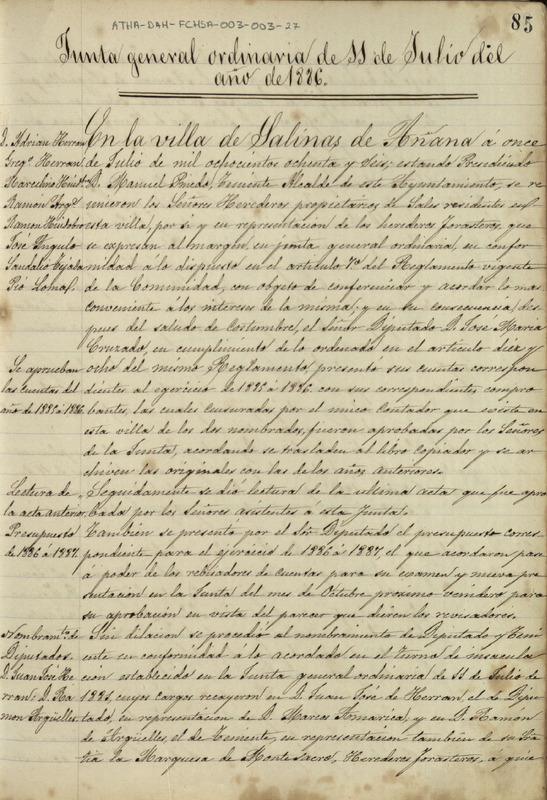 ATHA-DAH-FCHSA-003-003-27
85
Junta general ordinaria de 11 de Julio del
año de 1886.
D. Adrian Herran
Greg.º Herran
Marcelino
Ramon
Ramon Huidobro
José Angulo
Sandalio Tejada
Pio
En la villa de Salinas de Añana á once
de Julio de mil ochocientos ochenta y seis, estando Presidiendo
D. Manuel Pinedo, Teniente Alcalde de este Ayuntamiento, se re
unieron los Señores Herederos propietarios de Sales residentes en
esta villa, por si y en representacion de los herederos forasteros, que
se expresan al margen, en junta general ordinaria, en confor
midad á lo dispuesto en el artículo 1º del Reglamento vigente
de la Comunidad, con objeto de conferenciar y acordar lo mas
conveniente á los intereses de la misma; y en su consecuencia, des
pues del saludo de costumbre, el Señor Diputado D. José Maria
Cruzado, en cumplimiento de lo ordenado en el artículo diez y
Se aprueban
las cuentas del
año de 1885 á 1886.
ocho del mismo Reglamento, presentó sus cuentas correspon
dientes al ejercicio de 1885 á 1886 con sus correspondientes compro
bantes, las cuales censuradas por el unico Contador que existe en
esta villa de los dos nombrados, fueron aprobadas por los Señores
de la Junta, acordando se trasladen al libro copiador y se ar
chiven las originales con las de los años anteriores.
Lectura de
la acta anterior.
Seguidamente se dió lectura de la ultima acta que fue apro
bada por los Señores asistentes á esta Junta.
Presupuesto
de 1886 á 1887.
Tambien se presentó por el Sör Diputado el presupuesto corres
pondiente para el ejercicio de 1886 á 1887, el que acordaron pase
á poder de los revisadores de cuentas para su examen y nueva pre
sentacion en la Junta del mes de Octubre proximo venidero para
su aprobacion en vista del parecer que dieren los revisadores.
Nombram.to de
Diputados.
D. Juan José He
rran: D. Ra
mon Argüelles
Sin dilacion se procedió al nombramiento de Diputado y Teni
ente en conformidad á lo acordado en el turno de insacula
cion establecido en la Junta general ordinaria de 11 de Julio de
1885, cuyos cargos recayeron en D. Juan José de Herran, el de Dipu
tado, en representacion de D. Marcos Arnarica, y en D. Ramon
de Argüelles, el de Teniente, en representacion tambien de su
tia la Marquesa de Monte sacro, Herederos forasteros, á quie